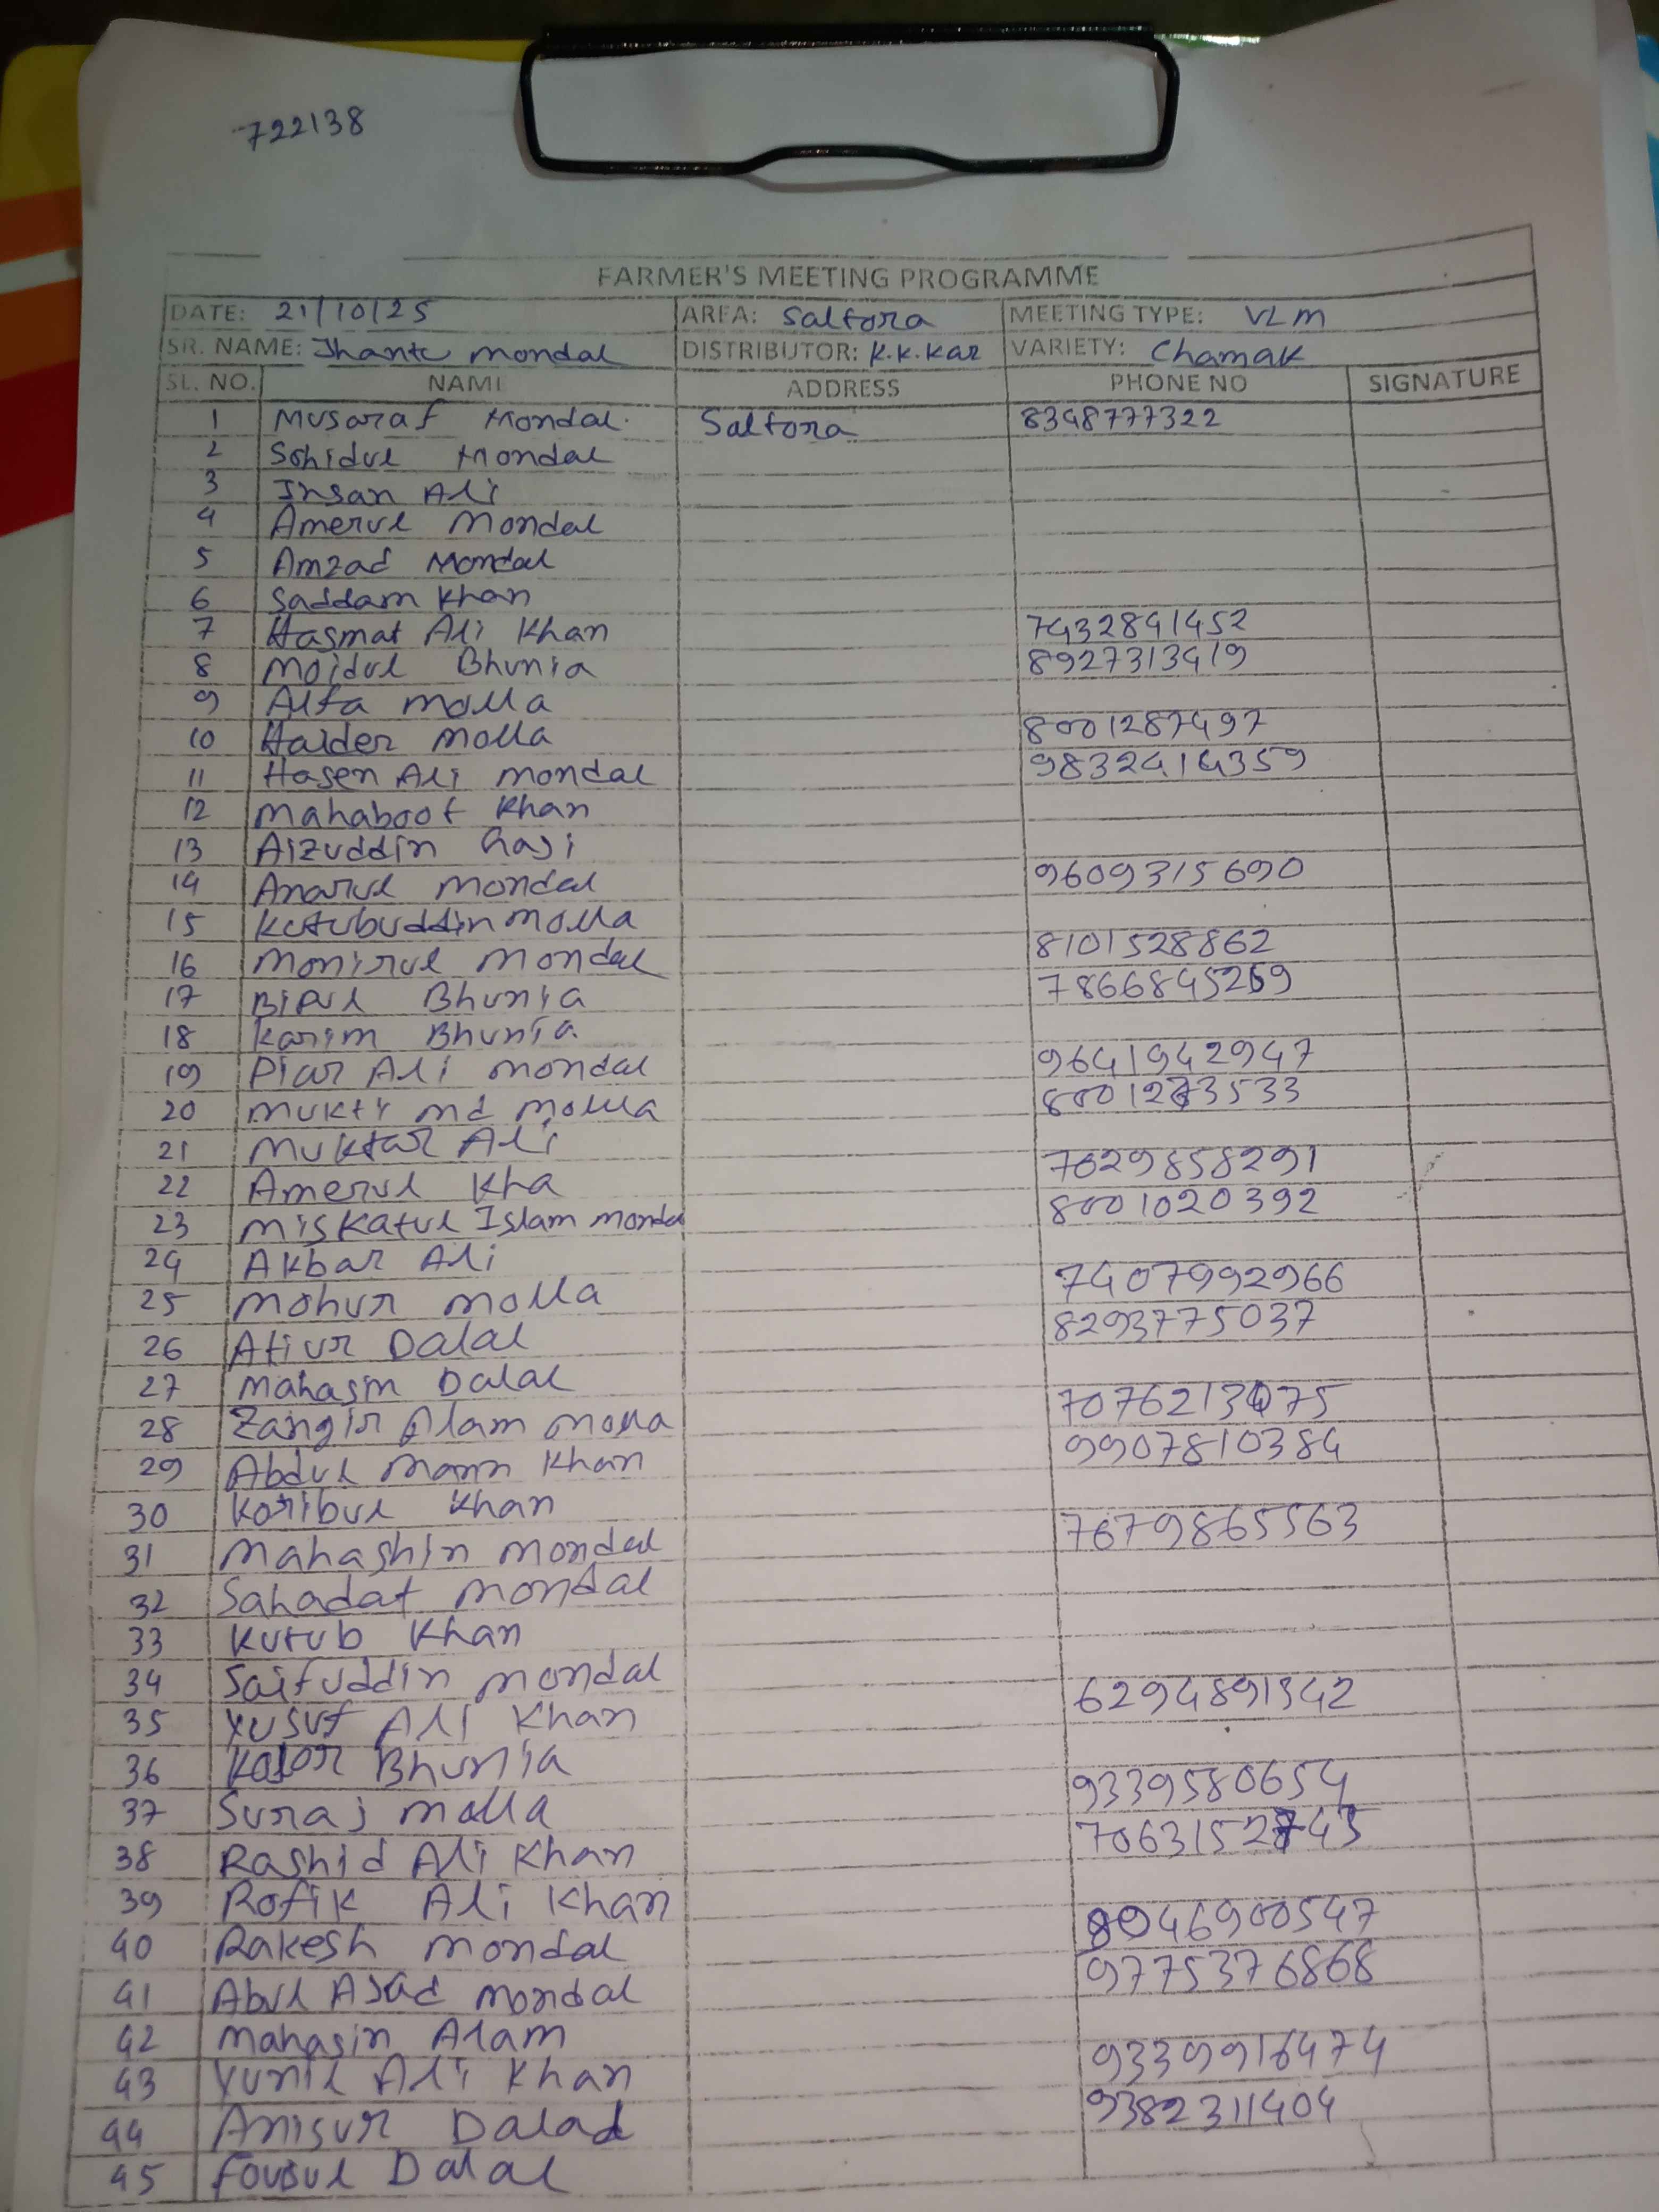 722138
FARMER'S MEETING PROGRAMME
DATE: 21/10/25 AREA: Saltora MEETING TYPE: VLM
SR. NAME: Jhantu Mondal DISTRIBUTOR: K.K.Kar VARIETY: Chamak
SL. NO. NAME ADDRESS PHONE NO SIGNATURE
1 Musaraf Mondal. Saltora 8348777322
2 Sohidul Mondal
3 Insan Ali
4 Amerul Mondal
5 Amzad Mondal
6 Saddam Khan
7 Hasmat Ali Khan 7432841452
8 Moidul Bhunia 8927313419
9 Alfa Molla
10 Haider Molla 8001287497
11 Hasen Ali Mondal 9832414359
12 Mahaboof Khan
13 Aizuddin Gasi
14 Anarul Mondal 9609315690
15 Kutubuddin Molla
16 Monirul Mondal 8101528862
17 Bipul Bhunia 7866845269
18 Karim Bhunia
19 Piar Ali Mondal 9641942947
20 Mukti Md Molla
21 Muktar Ali
22 Amerul Kha 7029858291
23 Miskatul Islam Mondal 8001020392
24 Akbar Ali
25 Mohur Molla 7407992966
26 Atiur Dalal 8293775037
27 Mahasin Dalal
28 Zangir Alam Molla
29 Abdul Mann Khan 9907810384
30 Koribul Khan
31 Mahashin Mondal 7679865563
32 Sahadat Mondal
33 Kutub Khan
34 Saifuddin Mondal
35 Yusuf Ali Khan 6294891342
36 Bhunia
37 Suraj Molla 9339580654
38 Rashid Ali Khan
39 Rofik Ali Khan
40 Rakesh Mondal
41 Abul Asad Mondal 9775376868
42 Mahasin Alam
43 Yunil Ali Khan 9339916474
44 Anisur Dalal 9382311404
45 Dalal